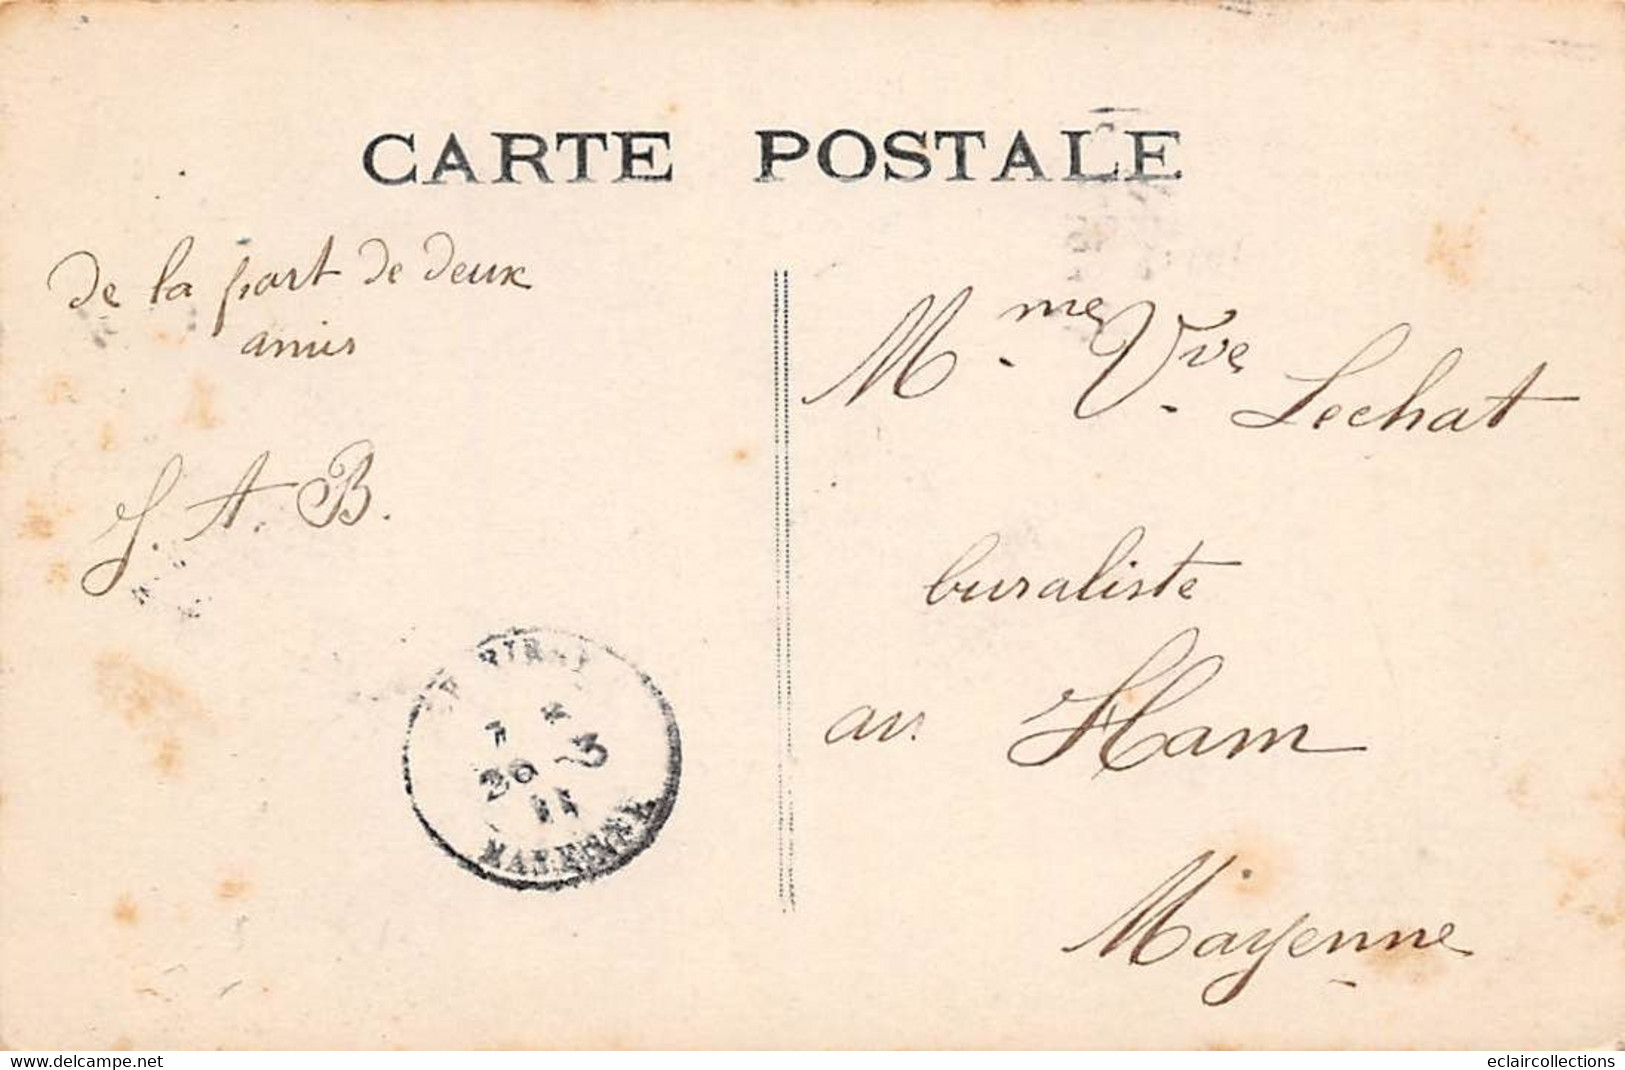 CARTE POSTALE
de la part de deux
amis
J. A. B.
Mme Vve Lechat
buraliste
au Ham
Mayenne
3
11
MAYENNE
www.delcampe.net
eclaircollections